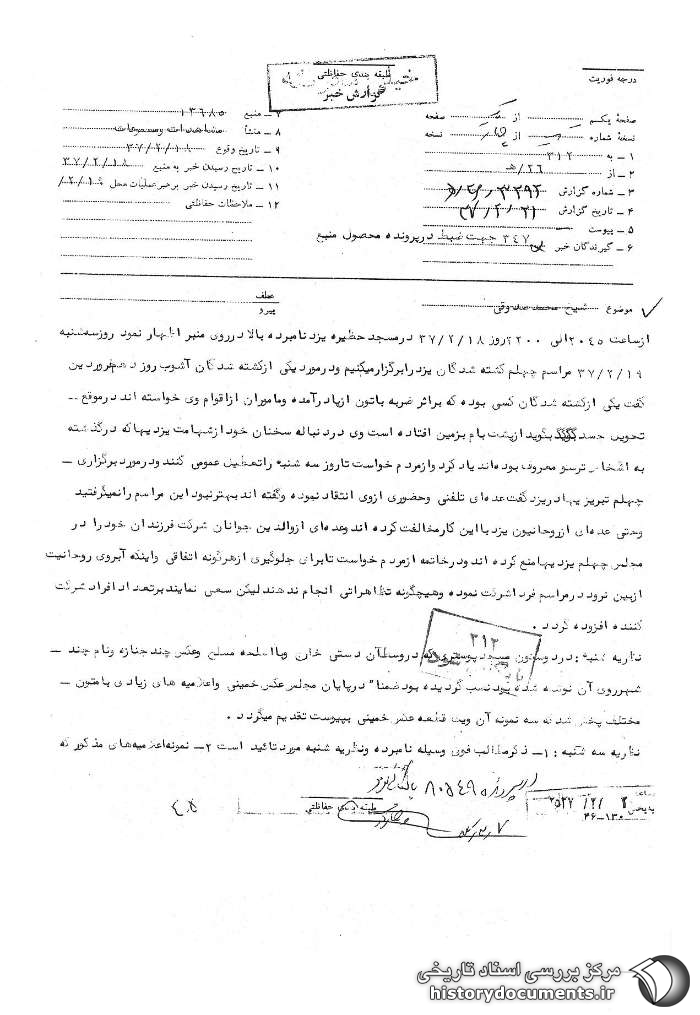 درجه فوریت
طبقه بندی حفاظتی
گزارش خبر
صفحه یکم از صفحه
نسخه شماره از نسخه
۱ ـ به ۳۱۲
۲ ـ از ۲۶/هـ
۳ ـ شماره گزارش
۴ ـ تاریخ گزارش
۵ ـ پیوست
۶ ـ گیرندگان خبر ۳۴۷ جهت ضبط در پرونده محصول منبع
۷ ـ منبع ۱۳۶۸۵
۸ ـ منشأ مشاهدات ومسموعات
۹ ـ تاریخ وقوع ۳۷/۲/۱۸
۱۰ ـ تاریخ رسیدن خبر به منبع ۳۷/۲/۱۸
۱۱ ـ تاریخ رسیدن خبر برهبر عملیات محل
۱۲ ـ ملاحظات حفاظتی
موضوع شیخ محمد صدوقی
عطف
پیرو
ازساعت ۲۰۴۵ الی ۲۲۰۰ روز ۳۷/۲/۱۸ درمسجد حظیره یزد نامبرده بالا درروی منبر اظهار نمود روزسه‌شنبه
۳۷/۲/۱۹ مراسم چهلم کشته شدگان یزد رابرگزارمیکنیم ودرمورد یکی ازکشته شدگان آشوب روز دهم فروردین
گفت یکی ازکشته شدگان کسی بوده که براثر ضربه باتون ازپادرآمده وماموران ازاقوام وی خواسته اند درموقع ــ
تحویل جسد بگوید ازپشت بام بزمین افتاده است وی دردنباله سخنان خود ازشهامت یزدیهاکه درگذشته
به اشخاص ترسو معروف بوده‌اند یاد کرد وازمردم خواست تاروز سه شنبه راتعطیل عمومی کنند ودرمورد برگزاری ــ
چهلم تبریزیها دریزد گفت عده‌ای تلفنی وحضوری ازوی انتقاد نموده وگفته اند بهترنبود این مراسم رانمیگرفتید
وحتی عده‌ای ازروحانیون یزد بااین کارمخالفت کرده اند وعده‌ای ازوالدین جوانان شرکت فرزندان خود را در
مجلس چهلم یزدیهامنع کرده اند ودرخاتمه ازمردم خواست تابرای جلوگیری ازهرگونه اتفاقی واینکه آبروی روحانیت
ازبین نرود درمراسم فردا شرکت نموده وهیچگونه تظاهراتی انجام ندهند لیکن سعی نمایند برتعداد افراد شرکت
کننده افزوده گردد .
نظریه شنبه : دردوستون مسجد پوستری که دروسط آن دستی خون وبااسلحه مسلح وعکس چند جنازه ونام چند ــ
شهرروی آن نوشته شده بود نصب گردیده بود ضمنا" درپایان مجلس عکس خمینی واعلامیه های زیادی بامتون ــ
مختلف پخش شد که سه نمونه آن ویک قطعه عکس خمینی بپیوست تقدیم میگردد .
نظریه سه شنبه : ۱ـ ذکرمطالب فوق وسیله نامبرده ونظریه شنبه مورد تائید است ۲ـ نمونه‌اعلامیه‌های مذکور که
۳۱۲
طبقه بندی حفاظتی
مرکز بررسی اسناد تاریخی
historydocuments.ir